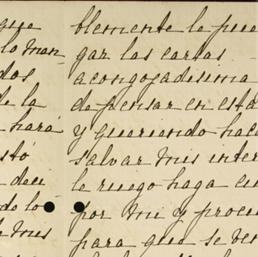 que
lo man-
dos
de la
hará
stó
deu
do lo
mis
blemente le pue
gar las cartas
acongojadisima
de pensar en esta
y queriendo hace
salvar mis inter
le ruego haga cu
por mi y procu
para que se ven